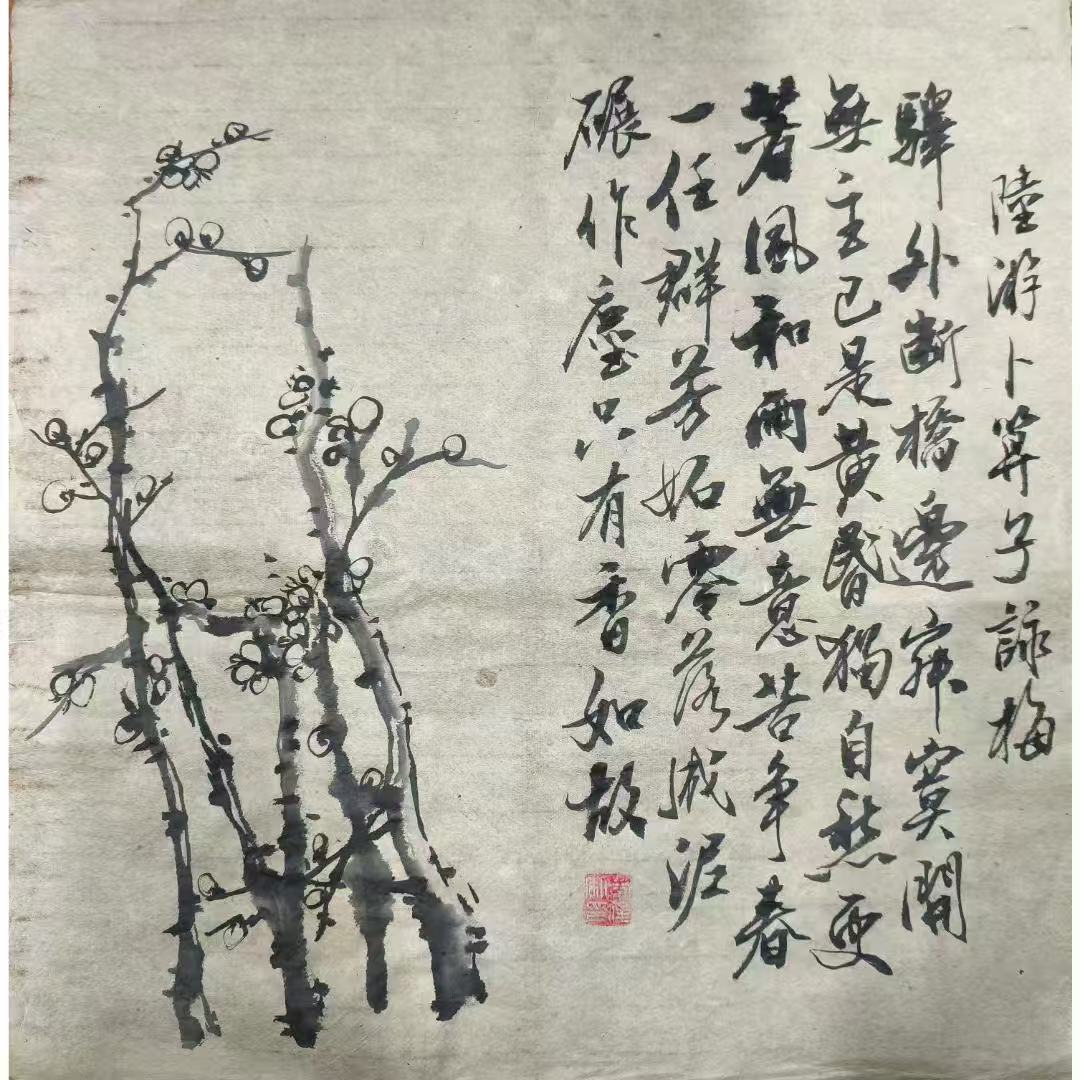 陸游卜算子詠梅
驛外斷橋邊寂寞開
無主已是黄昏獨自愁更
著風和雨無意苦爭春
一任群芳妬零落成泥
碾作塵只有香如故